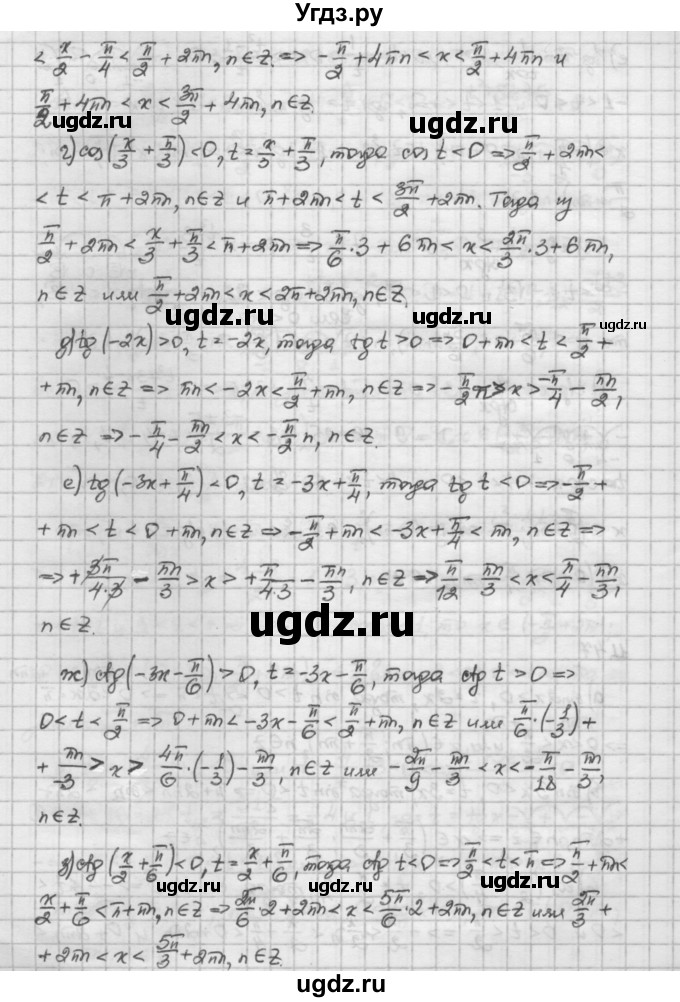 Угдз.ру
< x/2 - π/4 < π/2 + 2πn, n∈Z. => -π/2 + 4πn < x < π/2 + 4πn и
π/2 + 4πn < x < 3π/2 + 4πn, n∈Z.
ugdz.ru ugdz.ru
г) cos(x/3 + π/3) < 0, t = x/3 + π/3, тогда cos t < 0 => π/2 + 2πn <
< t < π + 2πn, n∈Z и π + 2πn < t < 3π/2 + 2πn. Тогда из
π/2 + 2πn < x/3 + π/3 < π + 2πn => π/6·3 + 6πn < x < 2π/3·3 + 6πn,
n∈Z или π/2 + 2πn < x < 2π + 2πn, n∈Z.
ugdz.ru ugdz.ru
д) tg(-2x) > 0, t = -2x, тогда tg t > 0 => 0 + πn < t < π/2 +
+ πn, n∈Z => πn < -2x < π/2 + πn, n∈Z => -π/2 n > x > -π/4 - πn/2,
n∈Z => -π/4 - πn/2 < x < -π/2 n, n∈Z.
ugdz.ru ugdz.ru
е) tg(-3x + π/4) < 0, t = -3x + π/4, тогда tg t < 0 => -π/2 +
+ πn < t < 0 + πn, n∈Z => -π/2 + πn < -3x + π/4 < πn, n∈Z =>
=> + 3π/4·3 - πn/3 > x > + π/4·3 - πn/3, n∈Z => π/12 - πn/3 < x < π/4 - πn/3,
n∈Z.
ugdz.ru ugdz.ru
ж) ctg(-3x - π/6) > 0, t = -3x - π/6, тогда ctg t > 0 =>
0 < t < π/2 => 0 + πn < -3x - π/6 < π/2 + πn, n∈Z или π/6·(-1/3) +
+ πn/-3 > x > 4π/6·(-1/3) - πn/3, n∈Z или -2π/9 - πn/3 < x < -π/18 - πn/3,
n∈Z.
ugdz.ru ugdz.ru
з) ctg(x/2 + π/6) < 0, t = x/2 + π/6, тогда ctg t < 0 => π/2 < t < π => π/2 + πn <
x/2 + π/6 < π + πn, n∈Z => 2π/6·2 + 2πn < x < 5π/6·2 + 2πn, n∈Z или 2π/3 +
+ 2πn < x < 5π/3 + 2πn, n∈Z.
ugdz.ru